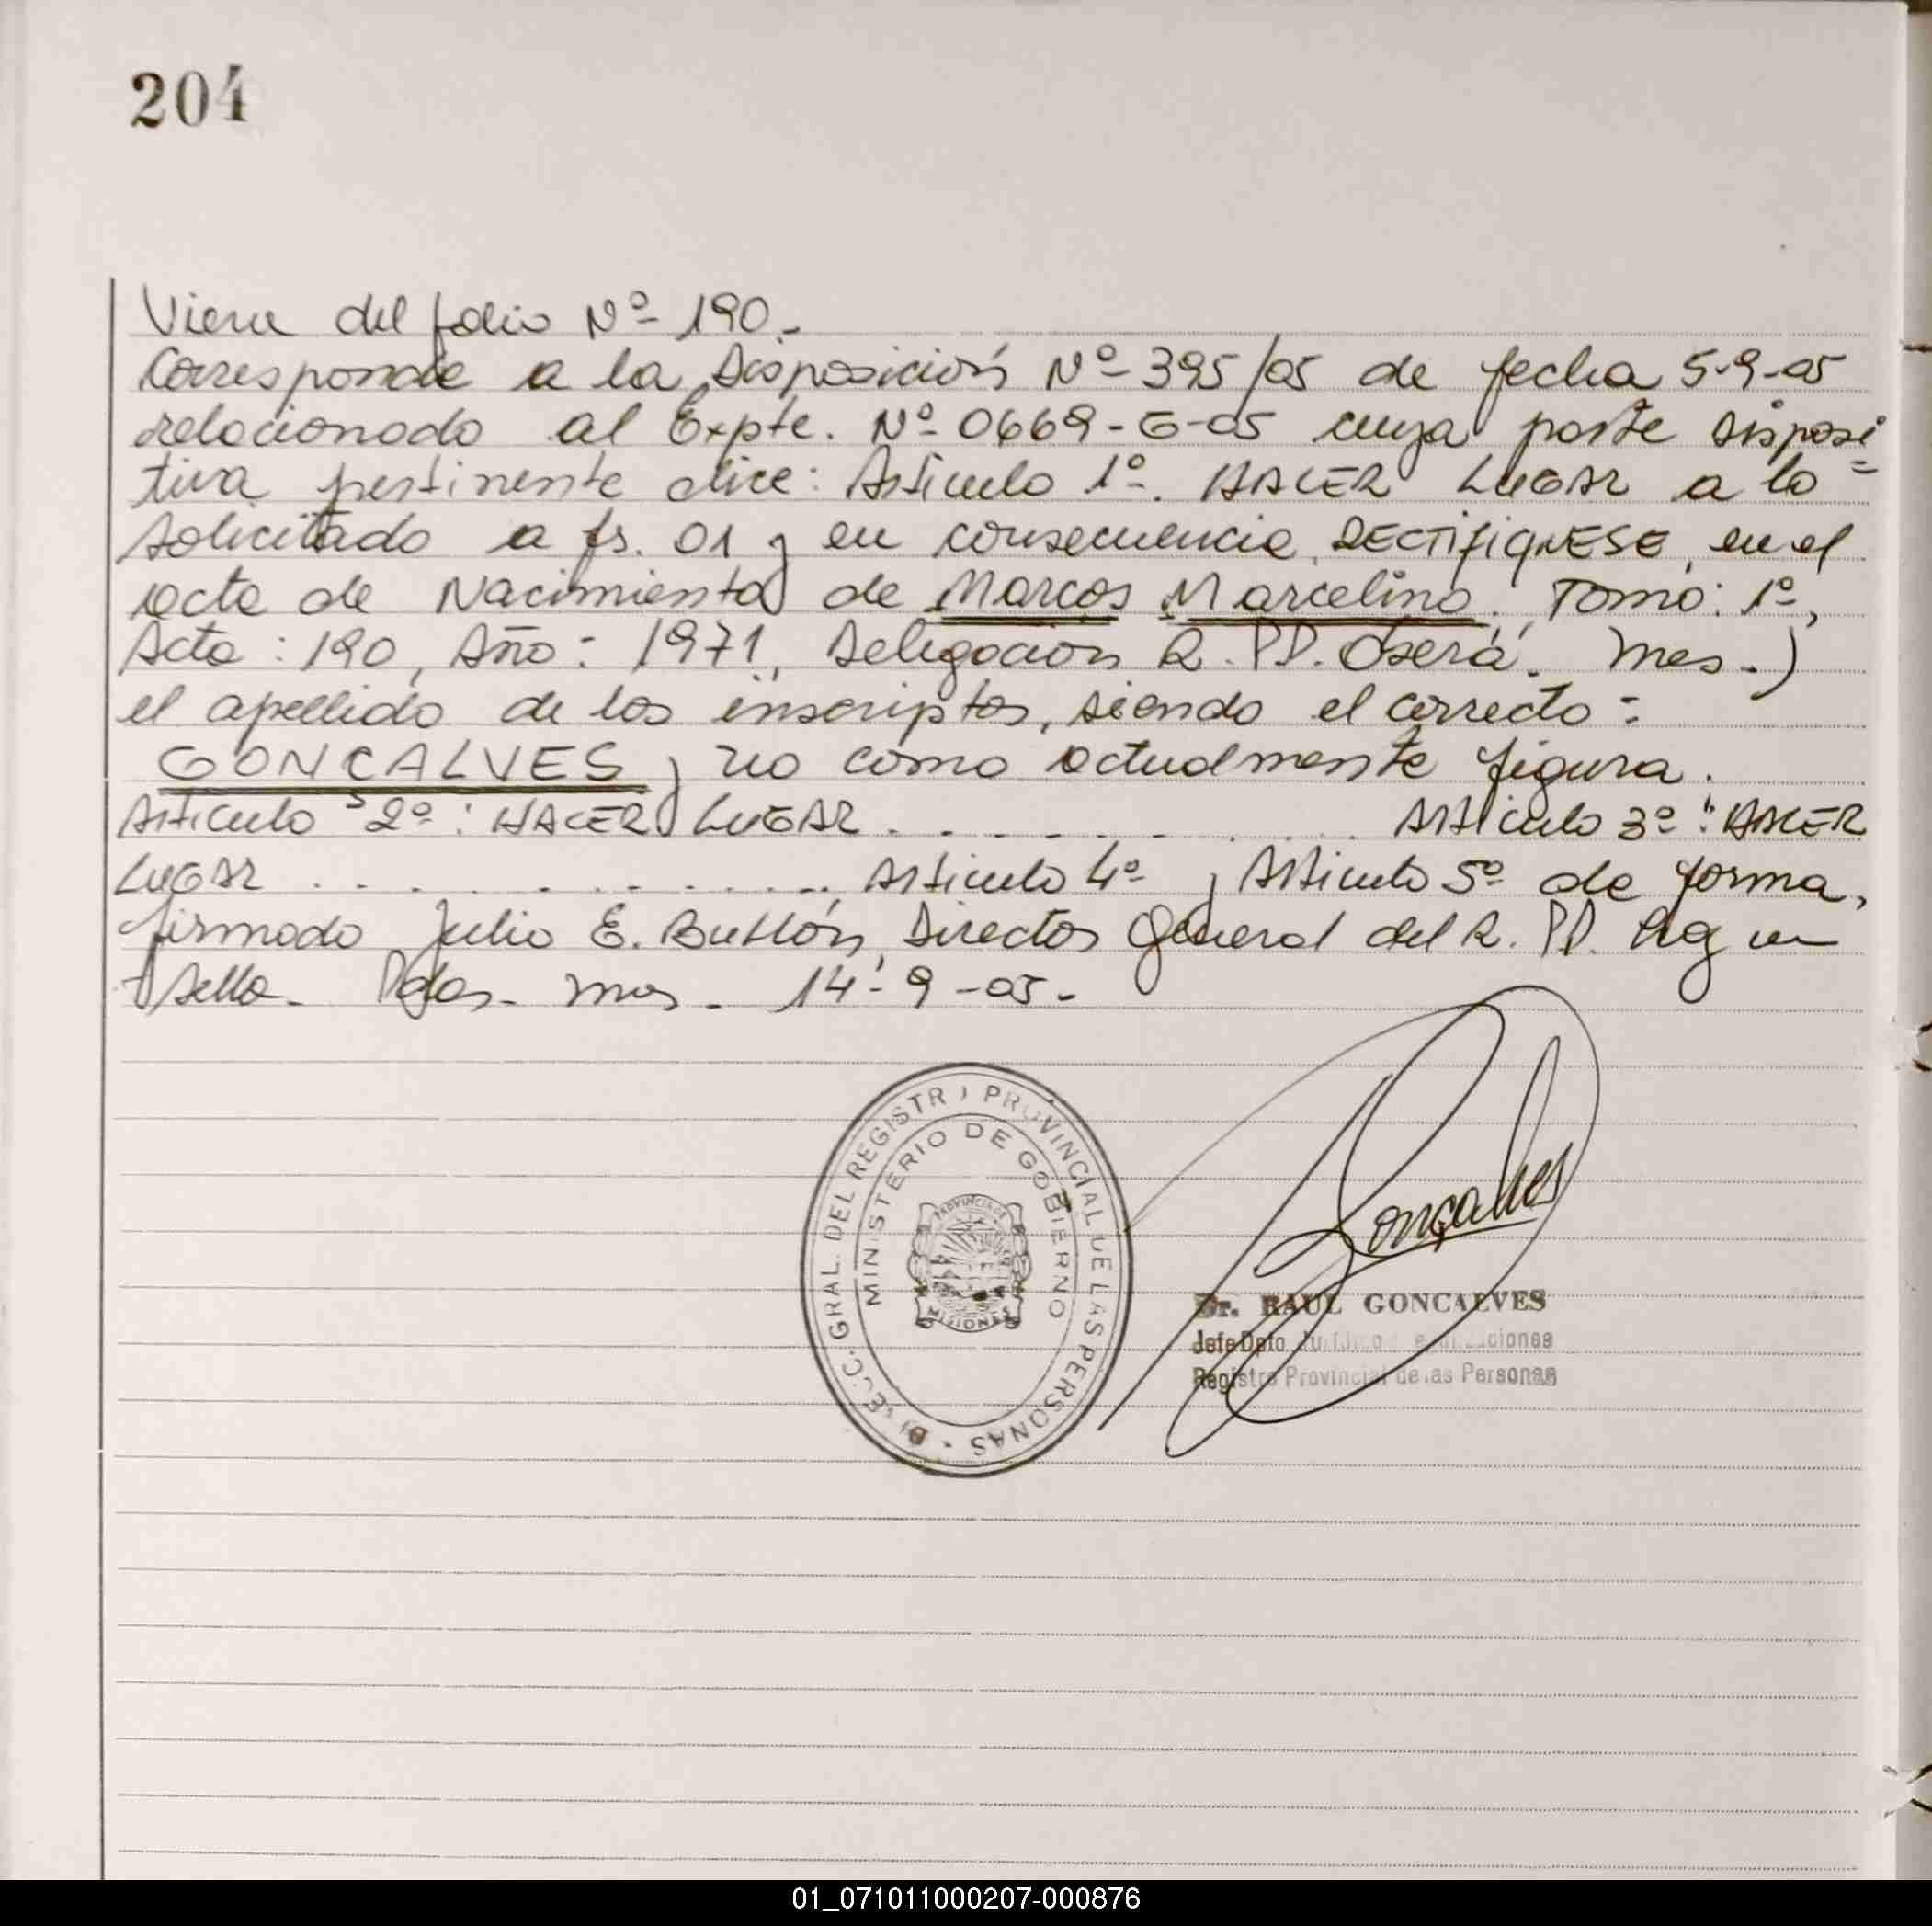 204
Viene del folio Nº 190.-
Corresponde a la Disposición Nº 395/05 de fecha 5-9-05
relacionado al Expte. Nº 0669-G-05 cuya parte disposi
tiva pertinente dice: Artículo 1º. HACER LUGAR a lo =
solicitado a fs. 01 y en consecuencia RECTIFIQUESE, en el
acta de Nacimiento de Marcos Marcelino. Tomo: 1º,
Acta: 190, Año: 1971, Delegación R. PP. Oberá. Mes.)
el apellido de los inscriptos, siendo el correcto:
GONÇALVES y no como actualmente figura.
Artículo 2º: HACER LUGAR . . . . . . . . . Artículo 3º: HACER
LUGAR . . . . . . . . . . Artículo 4º y Artículo 5º de forma,
firmado Julio E. Director General del R. PP. Hay un
sello. Pdas. Mes. 14-9-05.-
DIRECC. GRAL. DEL REGISTRO PROVINCIAL DE LAS PERSONAS
MINISTERIO DE GOBIERNO
PROVINCIA DE
MISIONES
Gonçalves
Dr. RAUL GONCALVES
Jefe Dpto
Registro Provincial de las Personas
01_071011000207-000876